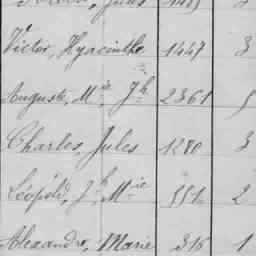 Jules 1485
Victor, Hyacinthe 1447 3
Auguste, Mie Jh 2361 5
Charles, Jules 1280 3
Léopold, Jh Mie 551 2
Alexandre, Marie 316 1